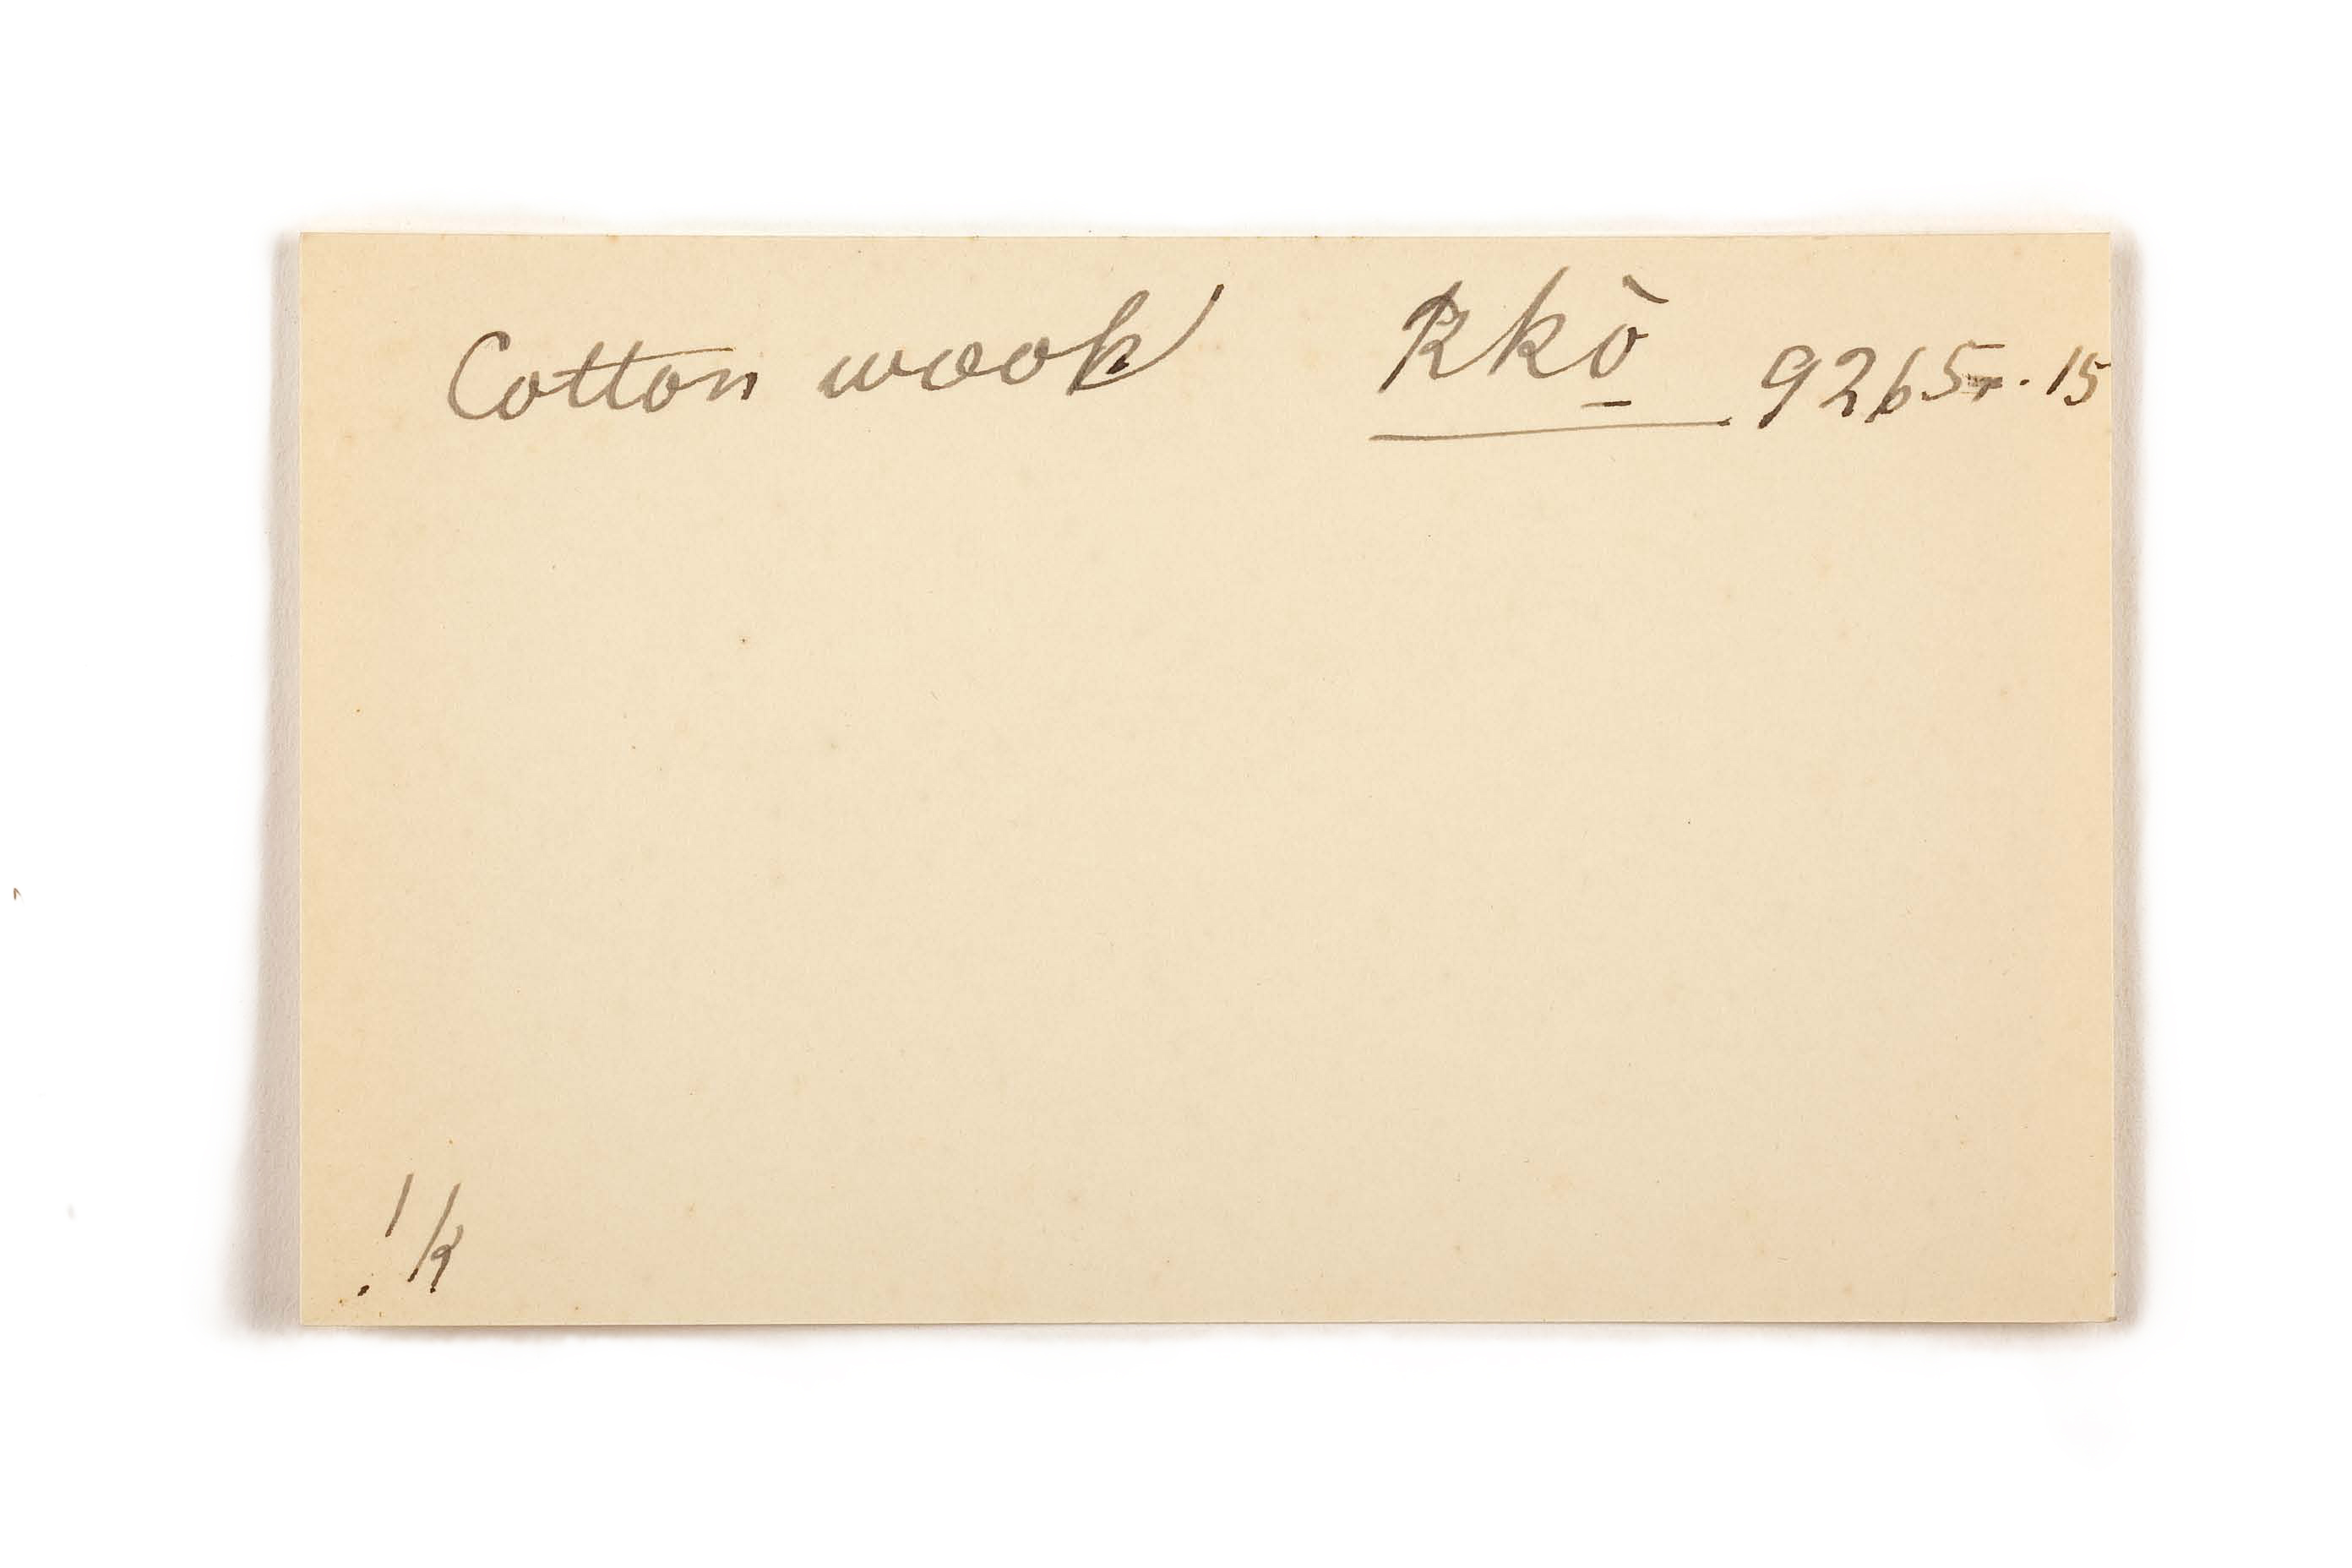 Cotton wook Kkò̱ 9265. 15
!k